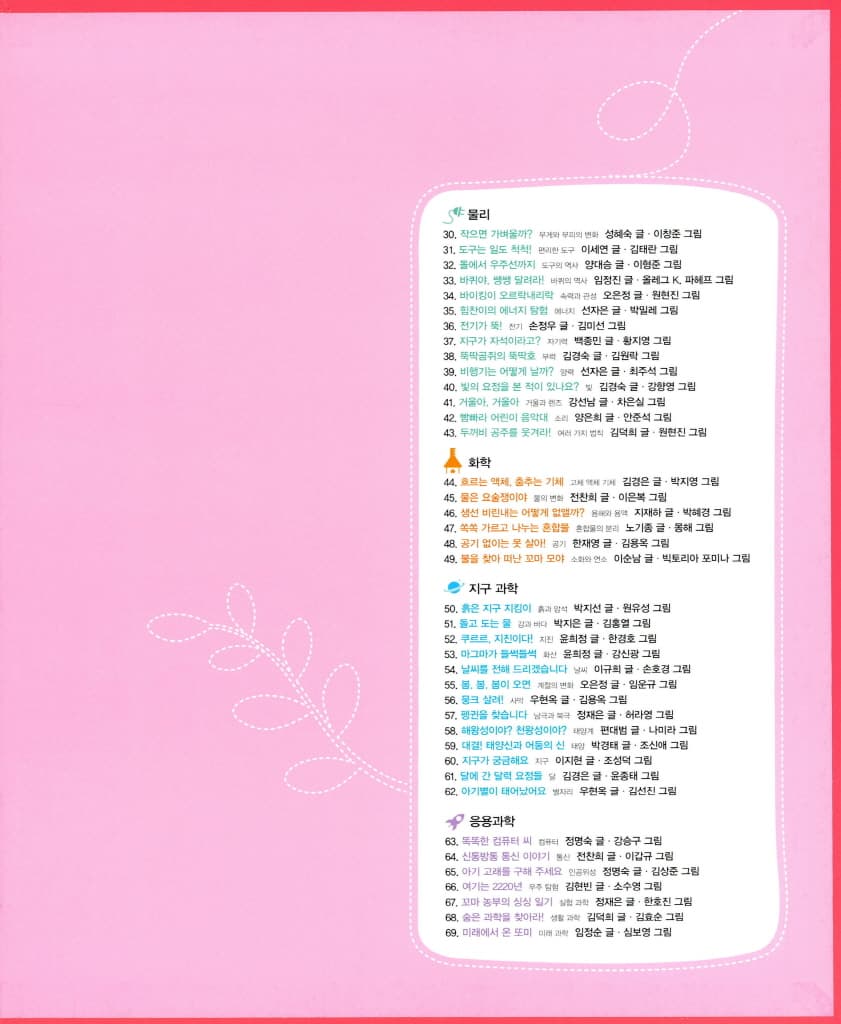 물리
30. 작으면 가벼울까? 무게와 부피의 변화 성혜숙 글 · 이창준 그림
31. 도구는 일도 척척! 편리한 도구 이세연 글 · 김태란 그림
32. 돌에서 우주선까지 도구의 역사 양대승 글 · 이형준 그림
33. 바퀴야, 쌩쌩 달려라! 바퀴의 역사 임정진 글 · 올레그 K. 파헤프 그림
34. 바이킹이 오르락내리락 속력과 관성 오은정 글 · 원현진 그림
35. 힘찬이의 에너지 탐험 에너지 선자은 글 · 박밀레 그림
36. 전기가 뚝! 전기 손정우 글 · 김미선 그림
37. 지구가 자석이라고? 자기력 백종민 글 · 황지영 그림
38. 뚝딱곰쥐의 뚝딱호 부력 김경숙 글 · 김원락 그림
39. 비행기는 어떻게 날까? 양력 선자은 글 · 최주석 그림
40. 빛의 요정을 본 적이 있나요? 빛 김경숙 글 · 강향영 그림
41. 거울아, 거울아 거울과 렌즈 강선남 글 · 차은실 그림
42. 빰빠라 어린이 음악대 소리 양은희 글 · 안준석 그림
43. 두꺼비 공주를 웃겨라! 여러 가지 법칙 김덕희 글 · 원현진 그림
화학
44. 흐르는 액체, 춤추는 기체 고체 액체 기체 김경은 글 · 박지영 그림
45. 물은 요술쟁이야 물의 변화 전찬희 글 · 이은복 그림
46. 생선 비린내는 어떻게 없앨까? 용해와 용액 지재하 글 · 박혜경 그림
47. 쏙쏙 가르고 나누는 혼합물 혼합물의 분리 노기종 글 · 몽해 그림
48. 공기 없이는 못 살아! 공기 한재영 글 · 김용옥 그림
49. 불을 찾아 떠난 꼬마 모야 소화와 연소 이순남 글 · 빅토리아 포미나 그림
지구 과학
50. 흙은 지구 지킴이 흙과 암석 박지선 글 · 원유성 그림
51. 돌고 도는 물 강과 바다 박지은 글 · 김홍열 그림
52. 쿠르르, 지진이다! 지진 윤희정 글 · 한경호 그림
53. 마그마가 들썩들썩 화산 윤희정 글 · 강신광 그림
54. 날씨를 전해 드리겠습니다 날씨 이규희 글 · 손호경 그림
55. 봄, 봄, 봄이 오면 계절의 변화 오은정 글 · 임운규 그림
56. 뭉크 살려! 사막 우현옥 글 · 김용옥 그림
57. 펭귄을 찾습니다 남극과 북극 정재은 글 · 허라영 그림
58. 해왕성이야? 천왕성이야? 태양계 편대범 글 · 나미라 그림
59. 대결! 태양신과 어둠의 신 태양 박경태 글 · 조신애 그림
60. 지구가 궁금해요 지구 이지현 글 · 조성덕 그림
61. 달에 간 달력 요정들 달 김경은 글 · 윤종태 그림
62. 아기별이 태어났어요 별자리 우현옥 글 · 김선진 그림
응용과학
63. 똑똑한 컴퓨터 씨 컴퓨터 정명숙 글 · 강승구 그림
64. 신통방통 통신 이야기 통신 전찬희 글 · 이갑규 그림
65. 아기 고래를 구해 주세요 인공위성 정명숙 글 · 김상준 그림
66. 여기는 2220년 우주 탐험 김현빈 글 · 소수영 그림
67. 꼬마 농부의 싱싱 일기 실험 과학 정재은 글 · 한호진 그림
68. 숨은 과학을 찾아라! 생활 과학 김덕희 글 · 김효순 그림
69. 미래에서 온 또미 미래 과학 임정순 글 · 심보영 그림